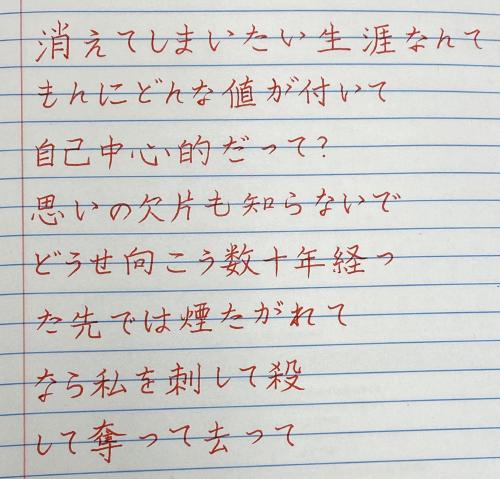 消えてしまいたい生涯なんて
もんにどんな値が付いて
自己中心的だって?
思いの欠片も知らないで
どうせ向こう数十年経っ
た先では煙たがれて
なら私を刺して殺
して奪って去って